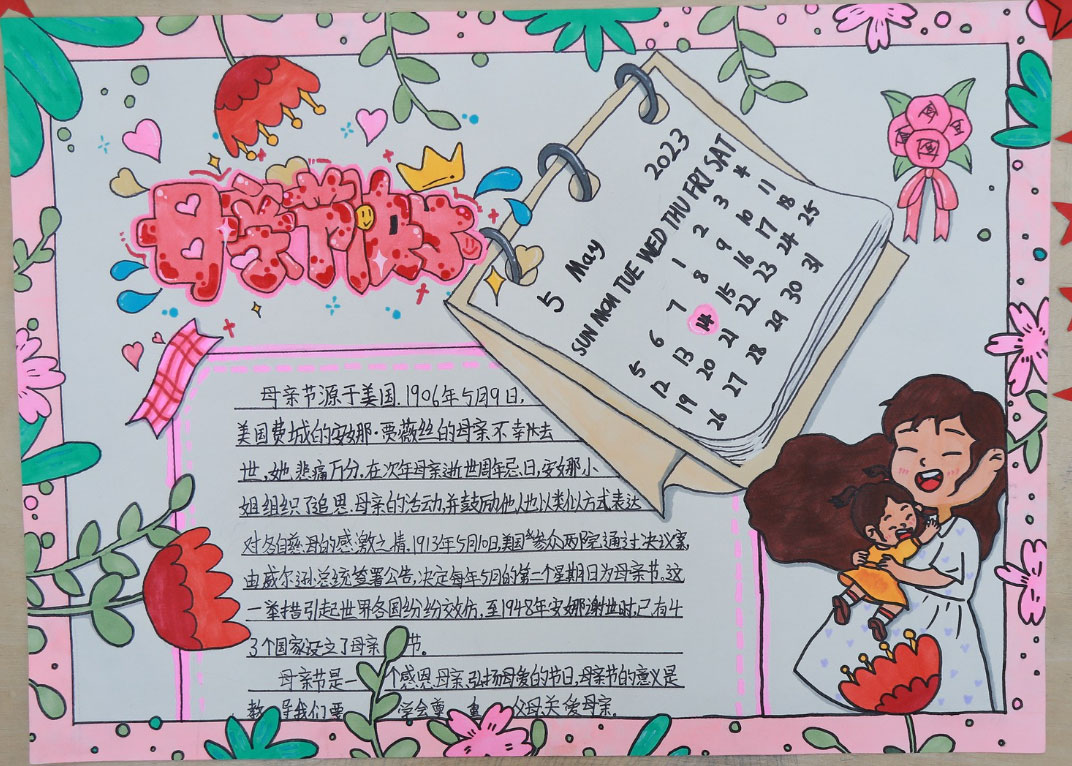 母亲节快乐
2023
5 May
SUN MON TUE WED THU FRI SAT
1 2 3 4
5 6 7 8 9 10 11
12 13 14 15 16 17 18
19 20 21 22 23 24 25
26 27 28 29 30 31
母亲节源于美国.1906年5月9日,
美国费城的安娜·贾薇丝的母亲不幸去
世,她悲痛万分.在次年母亲逝世周年忌日,安娜小
姐组织了追思母亲的活动,并鼓励他人也以类似方式表达
对各自慈母的感激之情.1913年5月10日,美国参众两院通过决议案,
由威尔逊总统签署公告,决定每年5月的第二个星期日为母亲节.这
一举措引起世界各国纷纷效仿,至1948年安娜谢世时,已有4
3个国家设立了母亲节.
母亲节是一个感恩母亲,弘扬母爱的节日,母亲节的意义是
教导我们要学会重 父母,关爱母亲.